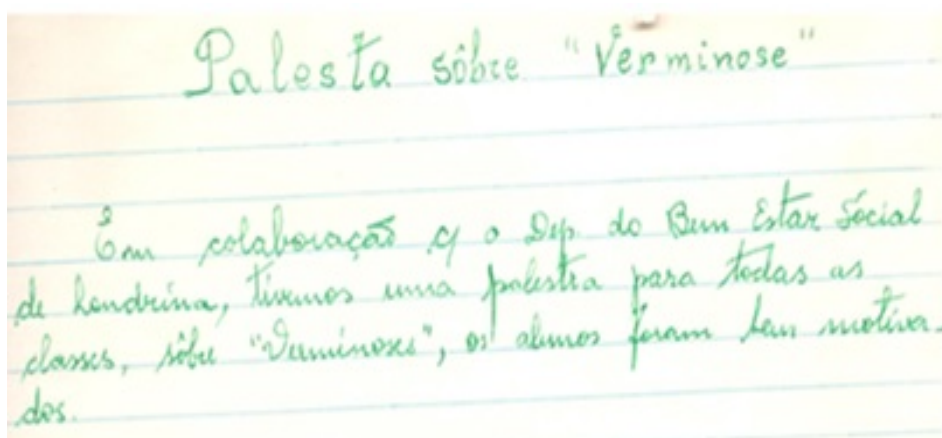 Palesta sôbre "Verminose"
Em colaboração c/ o Dep. do Bem Estar Social
de Londrina, tivemos uma palestra para todas as
classes, sôbre "Verminoses", os alunos foram bem motiva-
dos.